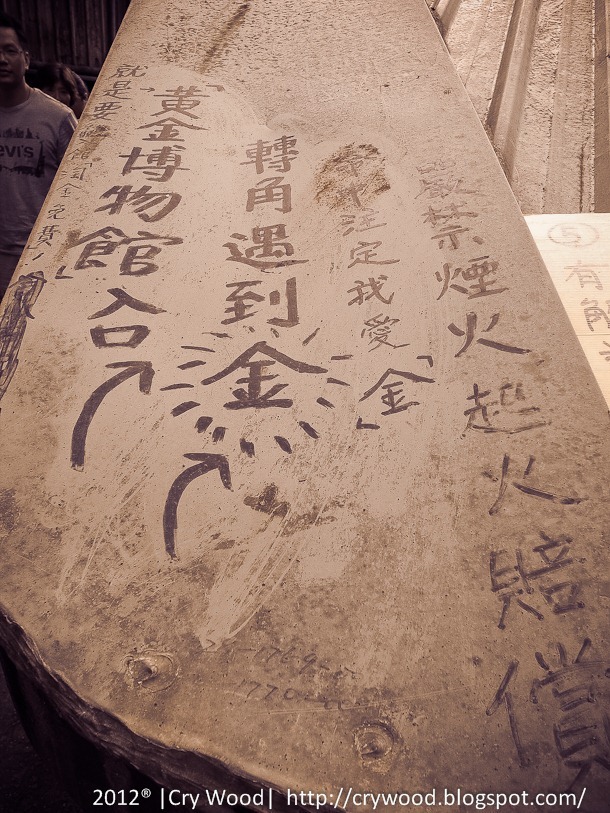 ⑤
有
嚴禁煙火 起火賠償
注定我愛「金」
轉角遇到金
「黃金博物館」入口
就是要
免費!
2012® |Cry Wood| http://crywood.blogspot.com/